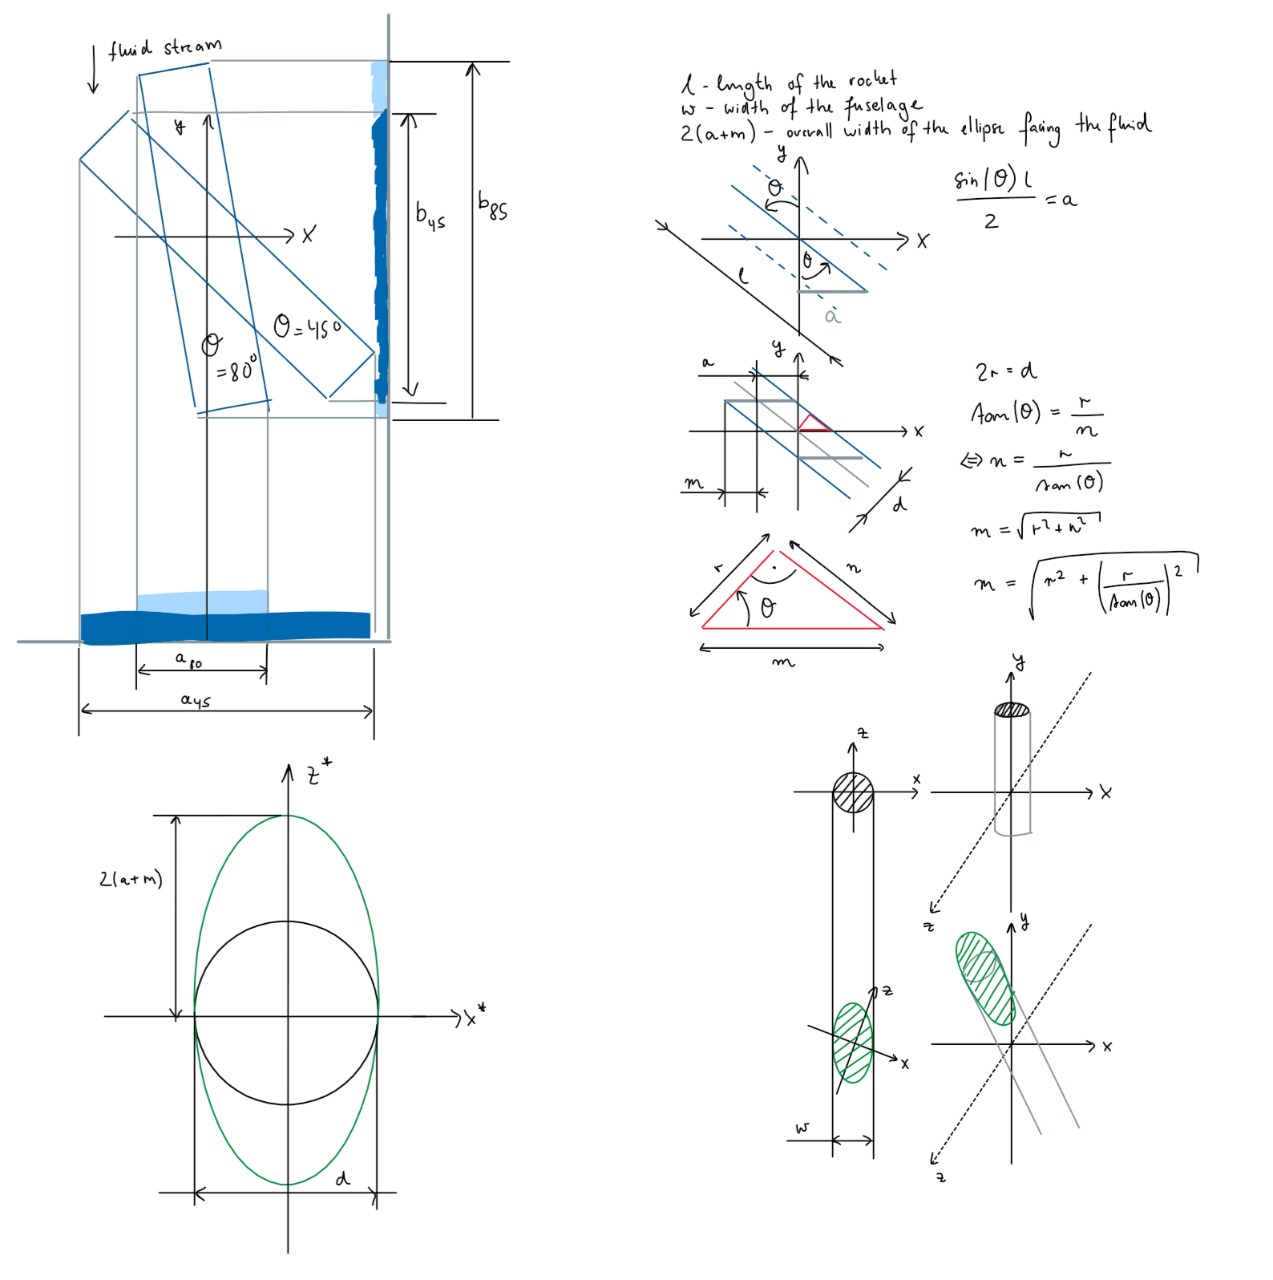 fluid stream
y
x
θ = 45°
θ = 80°
b45
b85
a80
a45
z*
2(a+m)
x*
d
l - length of the rocket
w - width of the fuselage
2(a+m) - overall width of the ellipse facing the fluid
y
θ
x
θ
l
a
sin(θ) l / 2 = a
a
y
x
m
d
2r = d
tan(θ) = r / n
⇔ n = r / tan(θ)
m = √(r² + n²)
m = √(r² + (r / tan(θ))²)
r
n
θ
m
z
x
y
x
z
z
x
w
y
x
z